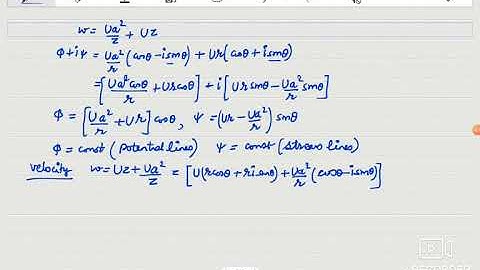 w = Ua²/z + Uz
ϕ+iψ = Ua²/r (cosθ - i sinθ) + Ur(cosθ + i sinθ)
= [Ua² cosθ/r + Ur cosθ] + i[Ur sinθ - Ua²/r sinθ]
ϕ = [Ua²/r + Ur] cosθ, ψ = (Ur - Ua²/r) sinθ
ϕ = const (potential lines) ψ = const (stress lines)
velocity w = Uz + Ua²/z = [U(r cosθ + r i sinθ) + Ua²/r (cosθ - i sinθ)]